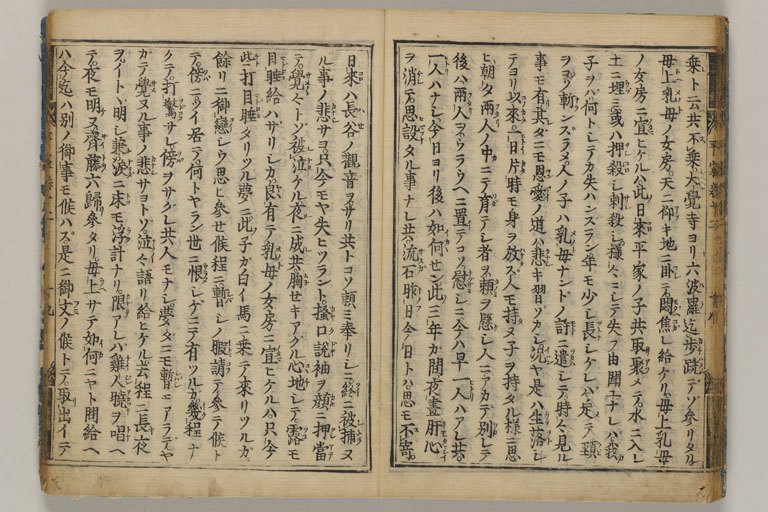 乗ト云共不乗大覚寺ヨリ六波羅迄歩跣デゾ参リタル
母上乳母ノ女房天ニ仰キ地ニ臥テ悶焦レ給ケリ母上乳母
ノ女房ニ宣ヒケルハ此日来平家ノ子共取聚メテ水ニ入レ
土ニ埋ミ或ハ押殺シ刺殺シ様々ニシテ失フ由聞エナレハ我
子ヲハ何トシテカ失ハンズラン年モ少シ長シケレハ定テ頚
ヲコソ斬ンズラメ人ノ子ハ乳母ナントノ許ニ遣シテ時々見ル
事モ有其ダニモ恩愛ノ道ハ悲キ習ゾカシ況ヤ是ハ生落シ
テヨリ以来一日片時モ身ヲ放ズ人モ持ヌ子ヲ持タル様ニ思
ヒ朝夕両人ノ中ニテ育テシ者ヲ頼ヲ懸シ人ニアカデ別レテ
後ハ両人ヲウラウヘニ置テコソ慰シニ今ハ早一人ハアレ共
一人ハナシ今日ヨリ後ハ如何セン此三年カ間夜昼肝心
ヲ消テ思設タル事ナレ共流石昨日今日トハ思モ不寄
日来ハ長谷ノ観音ヲサリ共トコソ頼ミ奉リシニ終ニ被捕ヌ
ル事ノ悲サヨ只今モヤ失ヒツラント掻口説袖ヲ顔ニ押當
テ覺々トゾ被泣ケル夜ニ成共胸セキアクル心地シテ露モ
目睡給ハサリシカ良有テ乳母ノ女房ニ宣ヒケルハ只今
些打目睡タリツル夢ニ此子カ白イ馬ニ乗テ来リツルカ
餘リニ御戀シウ思ヒ参セ候程ニ暫シノ暇請テ参テ候ト
テ傍ニツイ居テ何トヤラン世ニ恨シゲニテ有ツルカ幾程ナ
クテ打驚サレ傍ヲサクレ共人モナシ夢ダニモ暫モアラデヤ
カテ覺ヌル事ノ悲サヨトゾ泣々語リ給ヒケル去程ニ長夜
ヲイトヽ明シ兼涙ニ床モ浮計ナリ限アレハ鶏人暁ヲ唱ヘ
テ夜モ明ヌ齊藤六帰参タリ母上サテ如何ニヤト問給ヘ
ハ今迄ハ別ノ御事モ候ハス是ニ御文ノ候トテ取出イテ